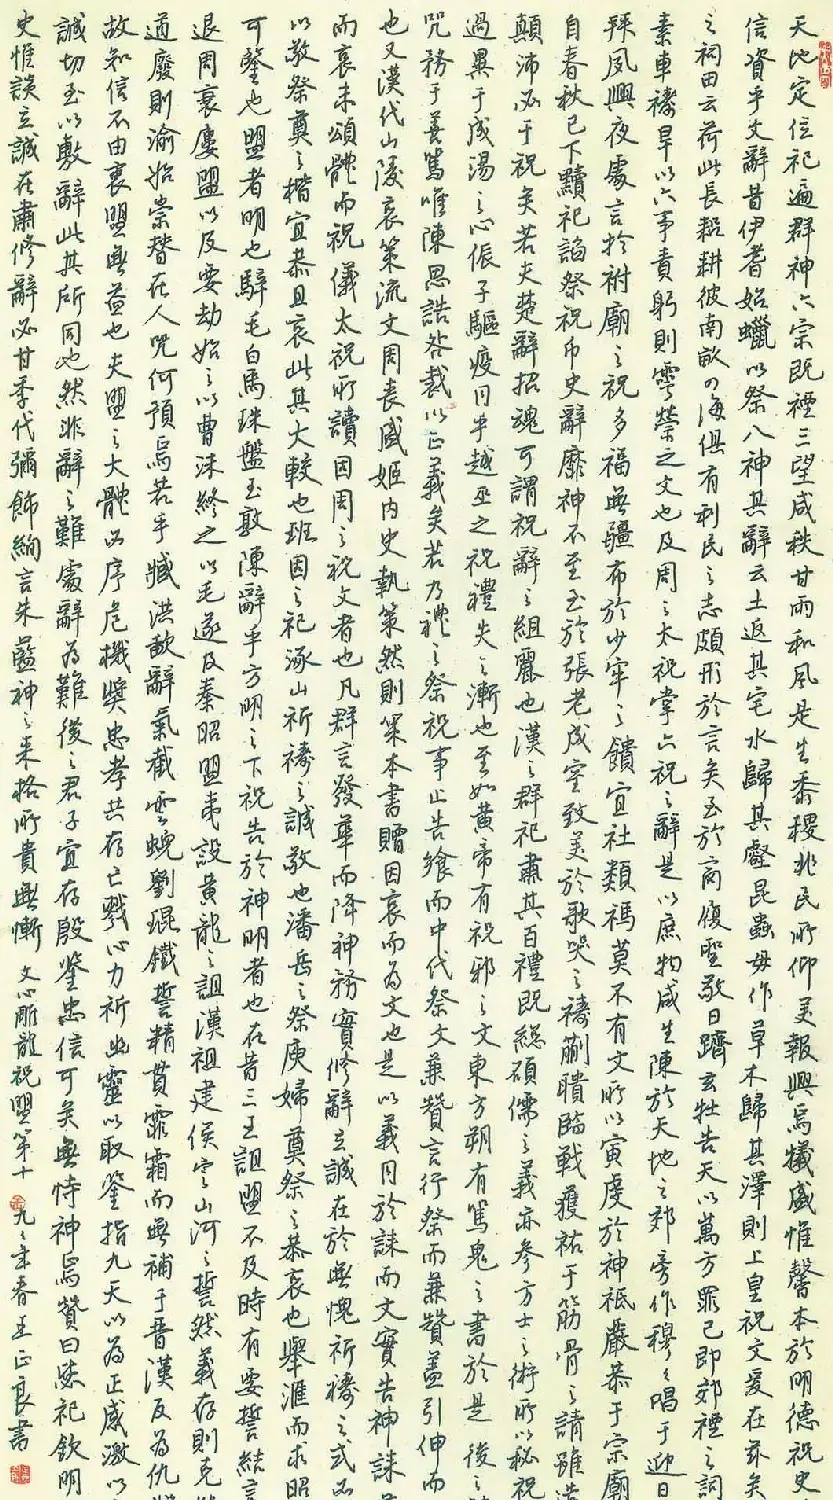 天地定位祀遍群神六宗既禋三望咸秩甘雨和風是生黍稷兆民所仰美報興焉犧盛惟馨本於明德祝史
信資乎文辭昔伊耆始蠟以祭八神其辭云土返其宅水歸其壑昆蟲毋作草木歸其澤則上皇祝文爰在茲矣
之祠田云荷此長耜耕彼南畝四海俱有利民之志頗形於言矣至於商履聖敬日躋玄牡告天以萬方罪己即郊禋之詞
素車禱旱以六事責躬則雩禜之文也及周之太祝掌六祝之辭是以庶物咸生陳於天地之郊旁作穆穆唱于迎日
拜夙興夜處言於祔廟之祝多福無疆布於少牢之饋宜社類禡莫不有文所以寅虔於神祇嚴恭于宗廟
自春秋已下黷祀諂祭祝幣史辭靡神不至至於張老成室致美於歌哭之禱蒯聵臨戰獲祐于筋骨之請雖造
顛沛必于祝矣若夫楚辭招魂可謂祝辭之組麗也漢之群祀肅其百禮既總碩儒之義亦參方士之術所以秘祝
過異于成湯之心侲子驅疫同乎越巫之祝禮失之漸也至如黃帝有祝邪之文東方朔有罵鬼之書於是後之
咒務于善罵唯陳思誥咎裁以正義矣若乃禮之祭祝事止告饗而中代祭文兼贊言行祭而兼贊蓋引伸而
也又漢代山陵哀策流文周喪盛姬內史執策然則策本書贈因哀而為文也是以義同於誄而文實告神誄
而哀末頌體而祝儀太祝所讀因周之祝文者也凡群言發華而降神務實修辭立誠在於無愧祈禱之式必
以敬祭奠之楷宜恭且哀此其大較也班固之祀涿山祈禱之誠敬也潘岳之祭庾婦奠祭之恭哀也舉匯而求昭
可鑒也盟者明也騂毛白馬珠盤玉敦陳辭乎方明之下祝告於神明者也在昔三王詛盟不及時有要誓結言
退周衰屢盟以及要劫始之以曹沫終之以毛遂及秦昭盟夷設黃龍之詛漢祖建侯定山河之誓然義存則克
道廢則渝始崇替在人咒何預焉若乎臧洪歃辭氣截雲蜺劉琨鐵誓精貫霏霜而無補于晉漢反為仇
故知信不由衷盟無益也夫盟之大體必序危機獎忠孝共存亡戮心力祈幽靈以取鑒指九天以為正感激以
誠切至以敷辭此其所同也然非辭之難處辭為難後之君子宜存殷鑒忠信可矣無恃神焉贊曰毖祀欽明
史惟談立誠在肅修辭必甘季代彌飾絢言朱藍神之來格所貴無慚 文心雕龍祝盟第十 九九年春王正良書